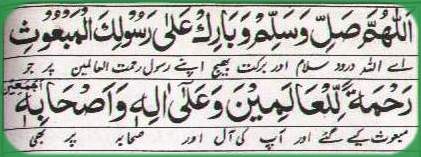 اَللّٰهُمَّ صَلِّ وَسَلِّمْ وَبَارِكْ عَلٰى رَسُوْلِكَ الْمَبْعُوْثِ
اے اللہ درود سلام اور برکت بھیج اپنے رسول رحمت العالمین پر جو
رَحْمَةً لِّلْعَالَمِيْنَ وَعَلٰى اٰلِهٖ وَاَصْحَابِهٖ اَجْمَعِيْنَ
مبعوث کیے گئے اور آپ کی آل اور صحابہ پر بھی